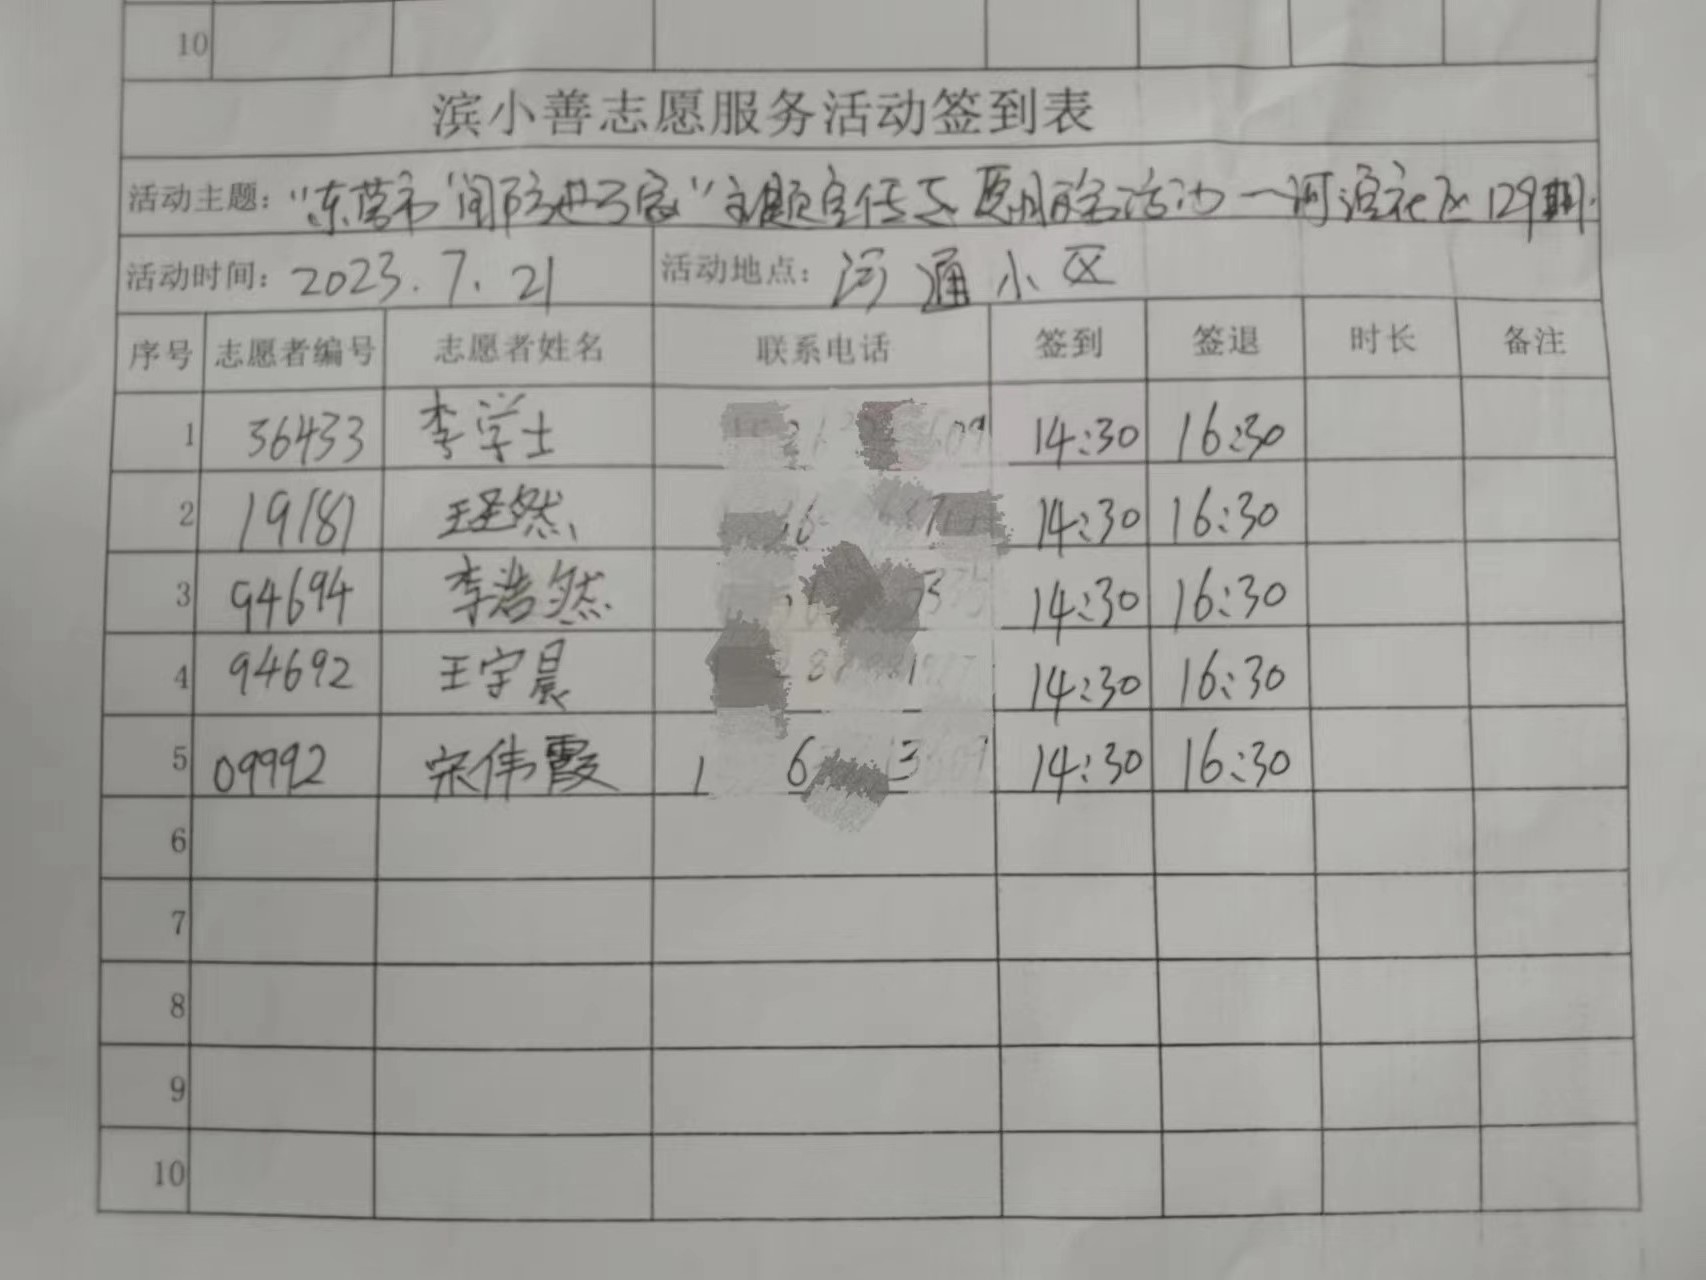 10
滨小善志愿服务活动签到表
活动主题：“东营市 消防进万家”主题宣传志愿服务活动一河滨社区129期.
活动时间：2023.7.21 活动地点：河通小区
序号 志愿者编号 志愿者姓名 联系电话 签到 签退 时长 备注
1 36433 李学士 14:30 16:30
2 19181 王圣然 14:30 16:30
3 94694 李浩然 14:30 16:30
4 94692 王宇晨 14:30 16:30
5 09992 宋伟霞 14:30 16:30
6
7
8
9
10